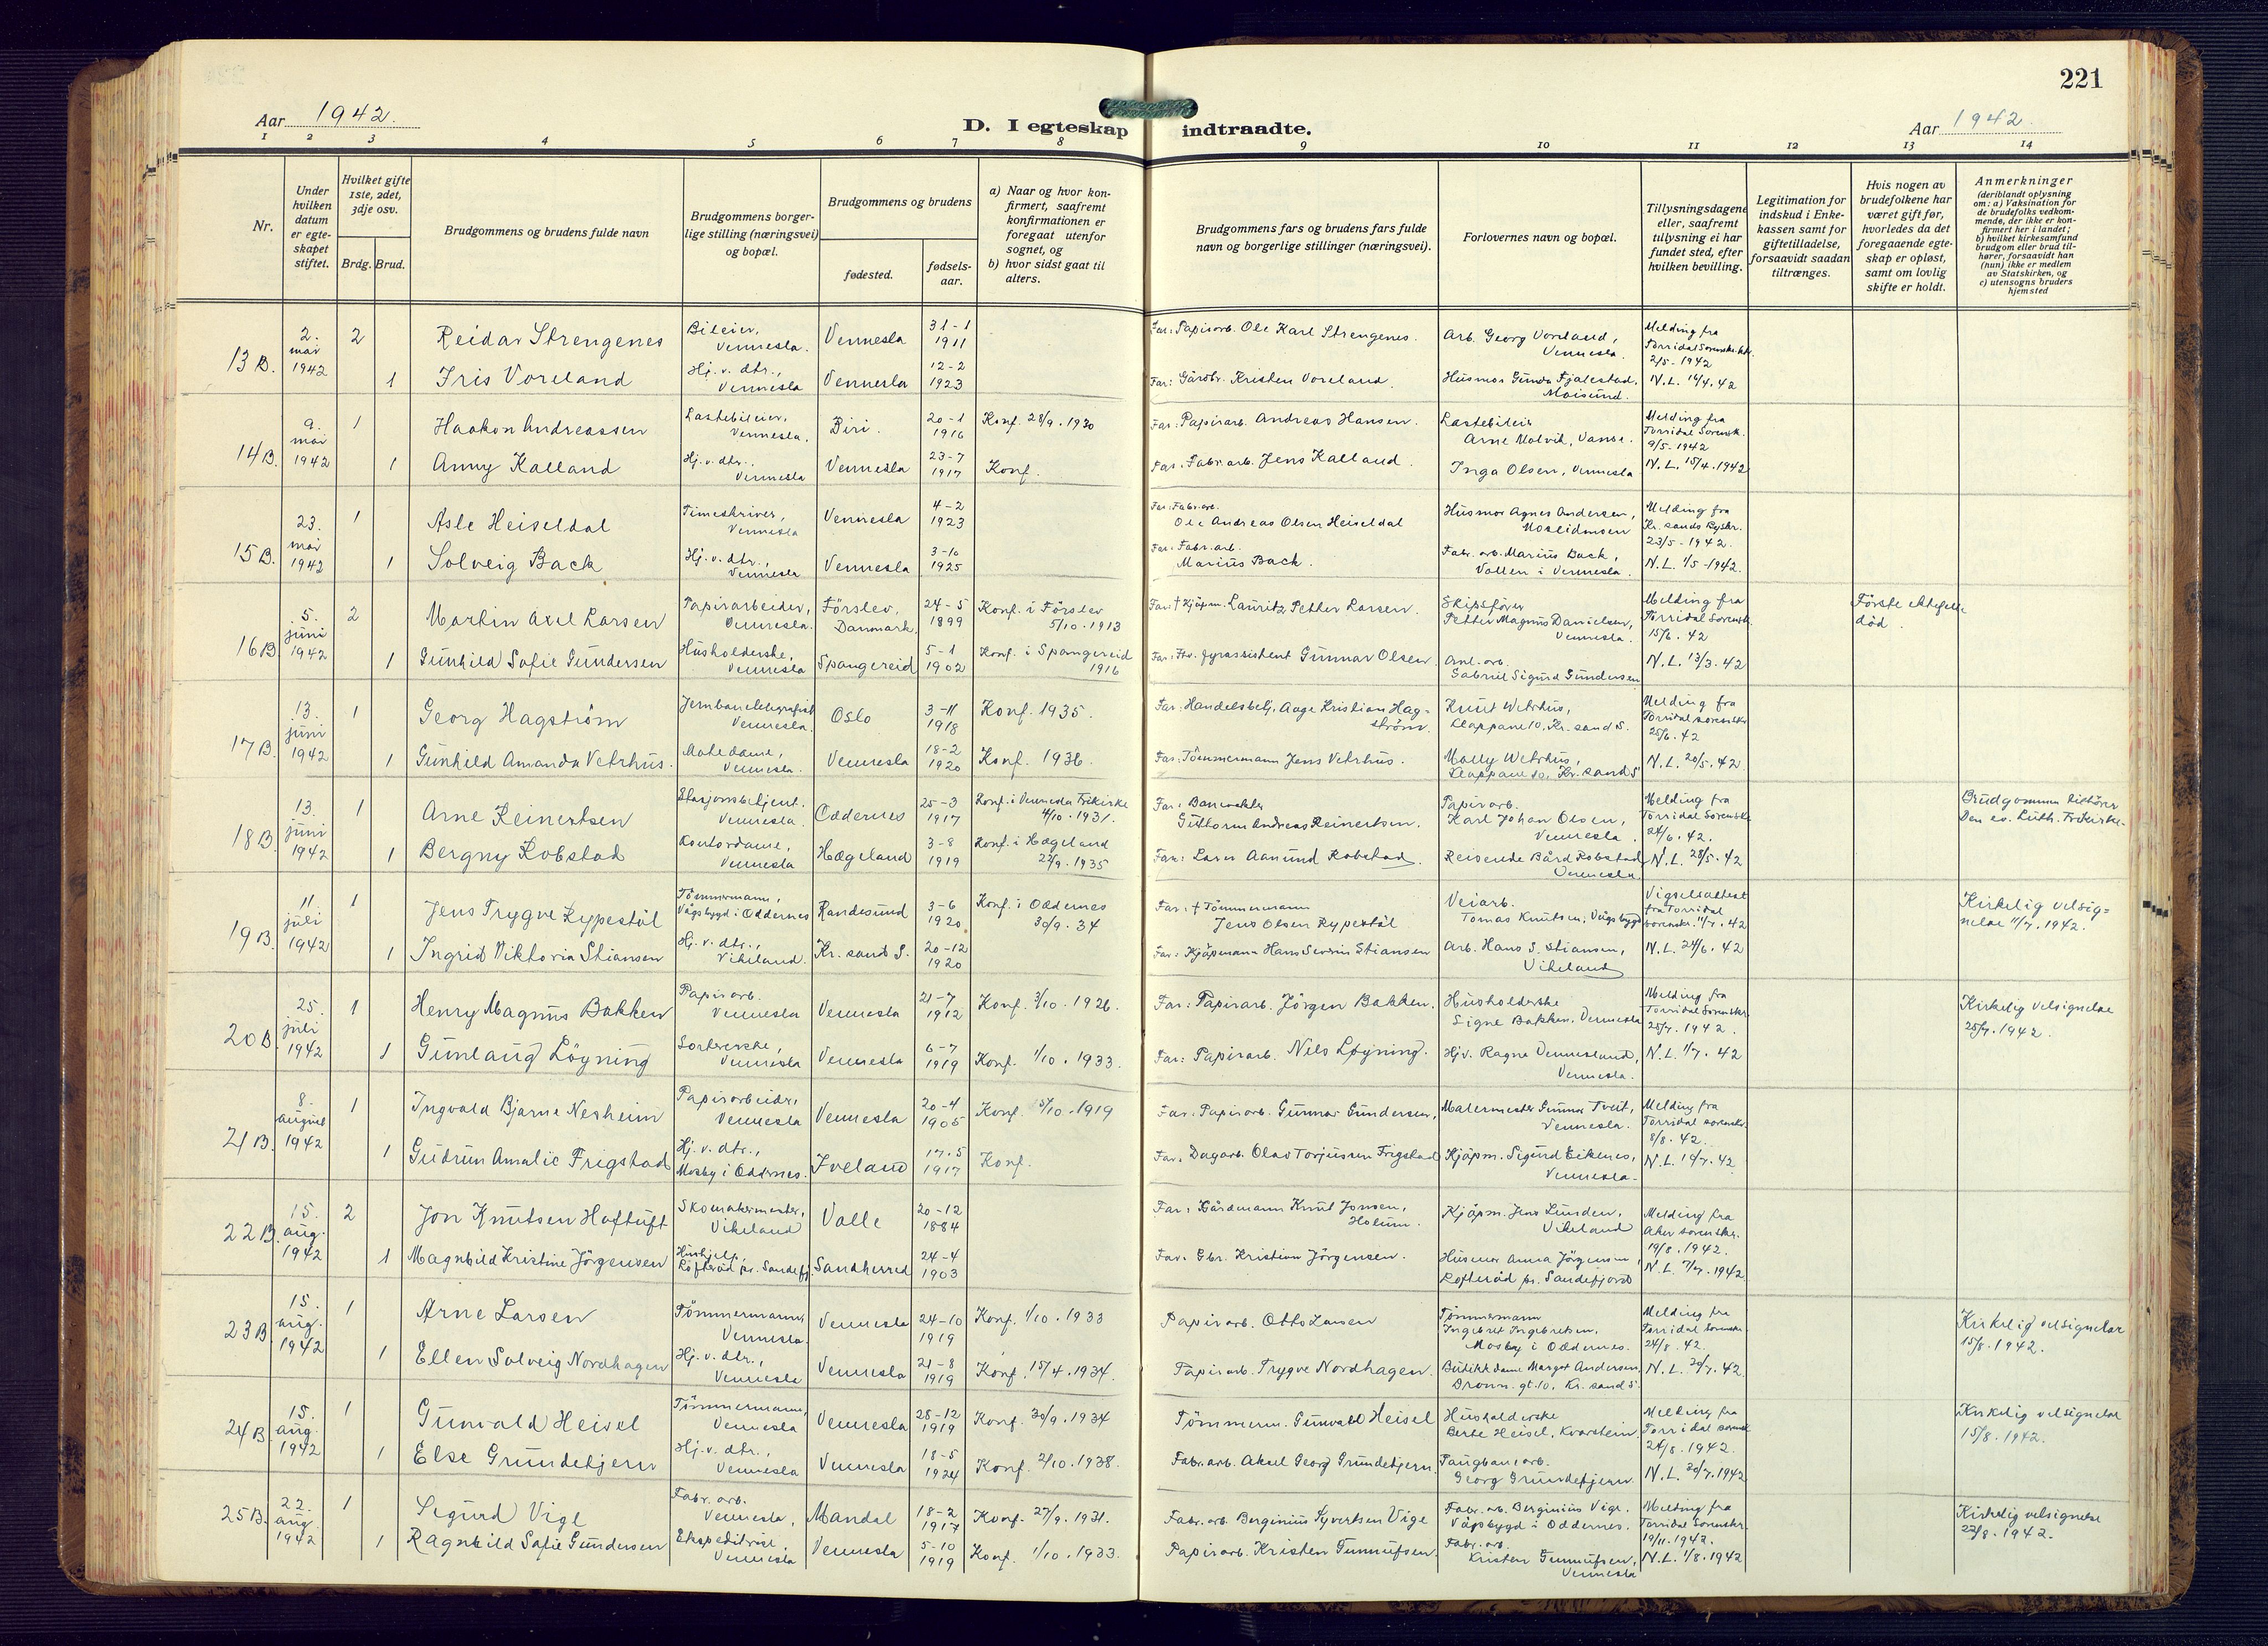 221
Aar 1942.
D. I egteskap indtraadte.
Aar 1942.
1 2 3 4 5 6 7 8 9 10 11 12 13 14
Nr.
Under hvilken datum er egteskapet stiftet.
Hvilket gifte 1ste, 2det, 3dje osv.
Brdg. Brud.
Brudgommens og brudens fulde navn
Brudgommens borgerlige stilling (næringsvei) og bopæl.
Brudgommens og brudens
fødested.
fødselsaar.
a) Naar og hvor konfirmert, saafremt konfirmationen er foregaat utenfor sognet, og
b) hvor sidst gaat til alters.
Brudgommens fars og brudens fars fulde navn og borgerlige stillinger (næringsvei).
Forlovernes navn og bopæl.
Tillysningsdagene eller, saafremt tillysning ei har fundet sted, efter hvilken bevilling.
Legitimation for indskud i Enkekassen samt for giftetilladelse, forsaavidt saadan tiltrænges.
Hvis nogen av brudefolkene har været gift før, hvorledes da det foregaaende egteskap er opløst, samt om lovlig skifte er holdt.
Anmerkninger
(deriblandt oplysning om: a) Vaksination for de brudefolks vedkommende, der ikke er konfirmert her i landet;
b) hvilket kirkesamfund brudgom eller brud tilhører, forsaavidt han (hun) ikke er medlem av Statskirken, og
c) utensogns bruders hjemsted
13 B. 2. mai 1942 2 Reidar Strengenes Bileier, Vennesla. Vennesla 31-1 1911 Far: Papirarb. Ole Karl Strengenes. Arb. Georg Voreland, Vennesla. Melding fra Torridal Sorenskr. 2/5-1942
1 Iris Voreland Hj. v. dtr., Vennesla Vennesla 12-2 1923 Far: Gårdbr. Kristen Voreland. Husmor Gunda Fjalestad, Moisund. N.L. 16/4.42
14 B. 9. mai 1942 1 Haakon Andreassen Lastebileier, Vennesla. Biri. 20-1 1916 Konf. 28/9.1930 Far: Papirarb. Andreas Hansen. Lastebileier Arne Valvik, Vanse. Melding fra Torridal Sorensk. 9/5-1942
1 Anny Kalland Hj. v. dtr., Vennesla Vennesla 23-7 1917 Konf. Far: Fabr. arb. Jens Kalland. Inga Olsen, Vennesla N.L. 15/4.1942
15 B. 23. mai 1942 1 Asle Heiseldal Timeskriver, Vennesla Vennesla 4-2 1923 Far: Fabr. arb. Ole Andreas Olsen Heiseldal Husmor Agnes Andersen, Moseidmoen Melding fra Kr. sands Byskr. 23/5-1942.
1 Solveig Back Hj. v. dtr., Vennesla Vennesla 3-10 1925 Far: Fabr. arb. Marius Back. Fabr. arb. Marius Back, Vallen i Vennesla. N.L. 1/5-1942.
16 B 5. juni 1942 2 Martin Axel Larsen Papirarbeider, Vennesla. Förslev, Danmark. 24-5 1899 Konf. i Förslev 5/10.1913 Far: † Kjøpm. Lauritz Petter Larsen. Skipsfører Petter Magnus Danielsen, Vennesla. Melding fra Torridal Sorensk. 15/6.42 Første ektefelle død.
1 Gunhild Sofie Gundersen Husholderske, Vennesla Spangereid 5-1 1902 Konf. i Spangereid 1916 Far: Ftv. fyrassistent Gunnar Olsen. Anl. arb. Gabriel Sigurd Gundersen N.L. 13/3.42
17 B. 13. juni 1942 1 Georg Hagström Jernbanetelegrafist Vennesla. Oslo 3-11 1918 Konf. 1935. Far: Handelsbetj. Aage Kristian Hagström. Knut Wetrhus, Klappane 10, Kr. sand S. Melding fra Torridal sorenskr. 25/6.42
1 Gunhild Amanda Vetrhus. Motedame, Vennesla. Vennesla 18-2 1920 Konf. 1936. Far: Tömmermann Jens Vetrhus. Molly Wetrhus, Klappane 10, Kr. sand S N.L. 20/5.42
18 B. 13. juni 1942 1 Arne Reinertsen Stasjonsbetjent. Vennesla. Oddernes 25-3 1917 Konf. i Vennesla Frikirke 4/10.1931. Far: Banevokter Guttorm Andreas Reinertsen. Papirarb. Karl Johan Olsen, Vennesla. Melding fra Torridal Sorenskr. 24/6.42. Brudgommen tilhører Den ev. Luth. Frikirke.
1 Bergny Robstad Kontordame, Vennesla Hægeland 3-8 1919 Konf. i Hægeland 22/9.1935 Far: Lars Aanund Robstad. Reisende Bård Robstad Vennesla. N.L. 28/5.42
19 B. 11. juli 1942 1 Jens Trygve Rypestöl Tömmermann, Vågsbygd i Oddernes Randesund 3-6 1920 Konf. i Oddernes 30/9.34 Far: † Tömmermann Jens Olsen Rypestöl Veiarb. Tomas Knutsen, Vågsbygd Vigselsattest fra Torridal sorenskr. 11/7.42 Kirkelig velsignelse 11/7.1942.
1 Ingrid Viktoria Stiansen Hj. v. dtr., Vikeland. Kr. sand S. 20-12 1920 Far: Kjöpmann Hans Severin Stiansen Arb. Hans S. Stiansen, Vikeland N.L. 24/6.42
20 B. 25. juli 1942 1 Henry Magnus Bakken Papirarb. Vennesla Vennesla 21-7 1912 Konf. 3/10.1926. Far: Papirarb. Jörgen Bakken. Husholderske Signe Bakken, Vennesla Melding fra Torridal Sorenskr. 25/7.1942. Kirkelig velsignelse 25/7.1942.
1 Gunlaug Löyning Sorterske, Vennesla Vennesla 6-7 1919 Konf. 1/10.1933. Far: Papirarb. Nils Løyning. Hjv. Ragna Vennesland, Vennesla. N.L. 1/7.42
21 B. 8. august 1942 1 Ingvald Bjarne Nesheim Papirarbeider, Vennesla Vennesla 20-4 1905 Konf. 5/10.1919 Far: Papirarb. Gunnar Gundersen, Malermester Gunnar Tveit, Vennesla. Melding fra Torridal sorenskr. 8/8.42.
1 Gudrun Amalie Frigstad Hj. v. dtr., Mosby i Oddernes. Iveland 17-5 1917 Konf. Far. Dagarb. Olav Torjusen Frigstad Kjöpm. Sigurd Eikenes, Vennesla. N.L. 14/7.42
22 B. 15. aug. 1942 2 Jon Knutsen Haftuft Skomakermester, Vikeland Valle 20-12 1884 Far: Gårdmann Knut Jonsen, Holum. Kjöpm. Jens Lunden, Vikeland Melding fra Aker sorenskr. 19/8.1942.
1 Magnhild Kristine Jörgensen Hushjelp, Rofteröd pr. Sandefj. Sandherred 24-4 1903 Far. Gbr. Kristian Jörgensen. Husmor Anna Jörgensen, Rofteröd pr. Sandefjord N.L. 7/7.1942
23 B 15. aug. 1942 1 Arne Larsen Tömmermann, Vennesla. Vennesla 24-10 1919 Konf. 1/10.1933 Papirarb. Otto Larsen Tömmermann Ingebret Ingebretsen, Mosby i Oddernes. Melding fra Torridal sorenskr. 24/8.42. Kirkelig velsignelse 15/8.1942.
1 Ellen Solveig Nordhagen Hj. v. dtr., Vennesla Vennesla 21-8 1919 Konf. 15/4.1934. Papirarb. Trygve Nordhagen. Butikkdame Margot Andersen, Dronn. gt. 10, Kr. sand S. N.L. 20/7.42
24 B. 15. aug. 1942 1 Gunvald Heisel Tömmermann, Vennesla Vennesla 28-12 1919 Konf. 30/9.1934 Tömmerm. Gunvald Heisel Husholderske Berte Heisel, Kvarstein. Melding fra Torridal sorensk. 24/8.1942. Kirkelig velsignelse 15/8.1942.
1 Else Grundetjern Hj. v. dtr., Vennesla Vennesla 18-5 1924 Konf. 2/10.1938. Fabr. arb. Aksel Georg Grundetjern. Taugbanearb. Georg Grundetjern. N.L. 20/7.1942
25 B. 22. aug. 1942 1 Sigurd Vige Fabr. arb. Vennesla, Mandal 18-2 1917 Konf. 27/9.1931. Fabr. arb. Berginius Syvertsen Vige Fabr. arb. Berginius Vige. Vågsbygd i Oddernes. Melding fra Torridal Sorenskr. 19/11.1942. Kirkelig velsignelse 22/8.1942.
1 Ragnhild Sofie Gundersen Ekspeditrise, Vennesla Vennesla 5-10 1919 Konf. 1/10.1933. Papirarb. Kristen Gunnufsen. Fabr. arb. Kristen Gunnufsen, Vennesla N.L. 1/8.1942